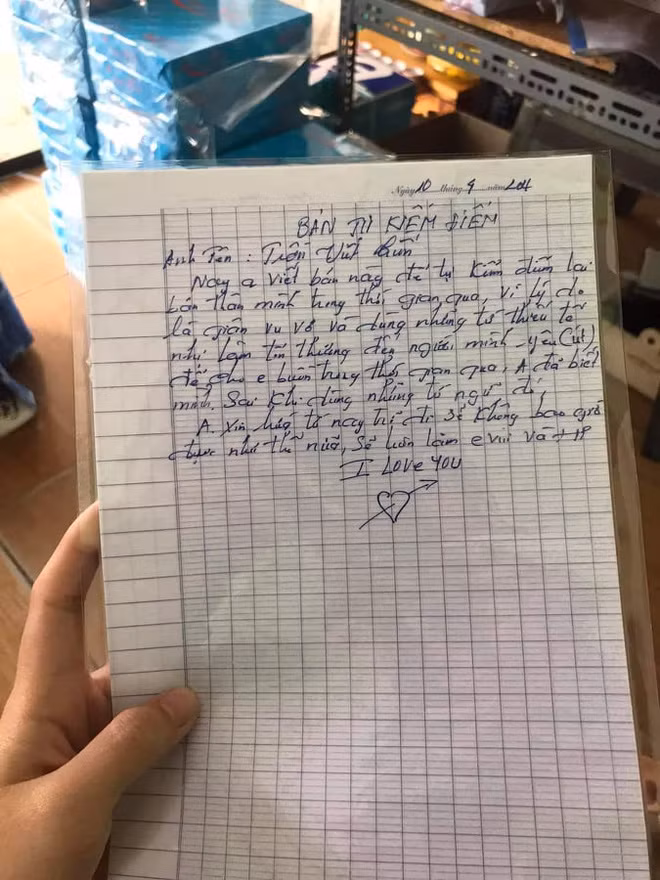 Ngày 10 tháng 9 năm 201
BẢN TỰ KIỂM ĐIỂM
Anh Tên : Trần Viết
Nay a viết bản này để tự kiểm điểm lại
bản thân mình trong thời gian qua, vì lý do
là giận vu vơ và dùng những từ thiếu tế
nhị làm tổn thương đến người mình yêu (
để cho e buồn trong thời gian qua, A đã biết
mình sai khi dùng những từ ngữ đó,
A. Xin hứa từ nay trở đi sẽ không bao giờ
được như thế nữa, sẽ luôn làm e vui và HP
I LOVE YOU